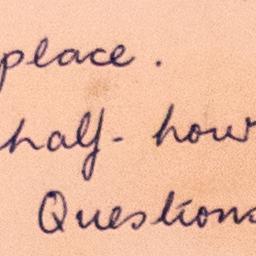 place.
half-hour
Questions